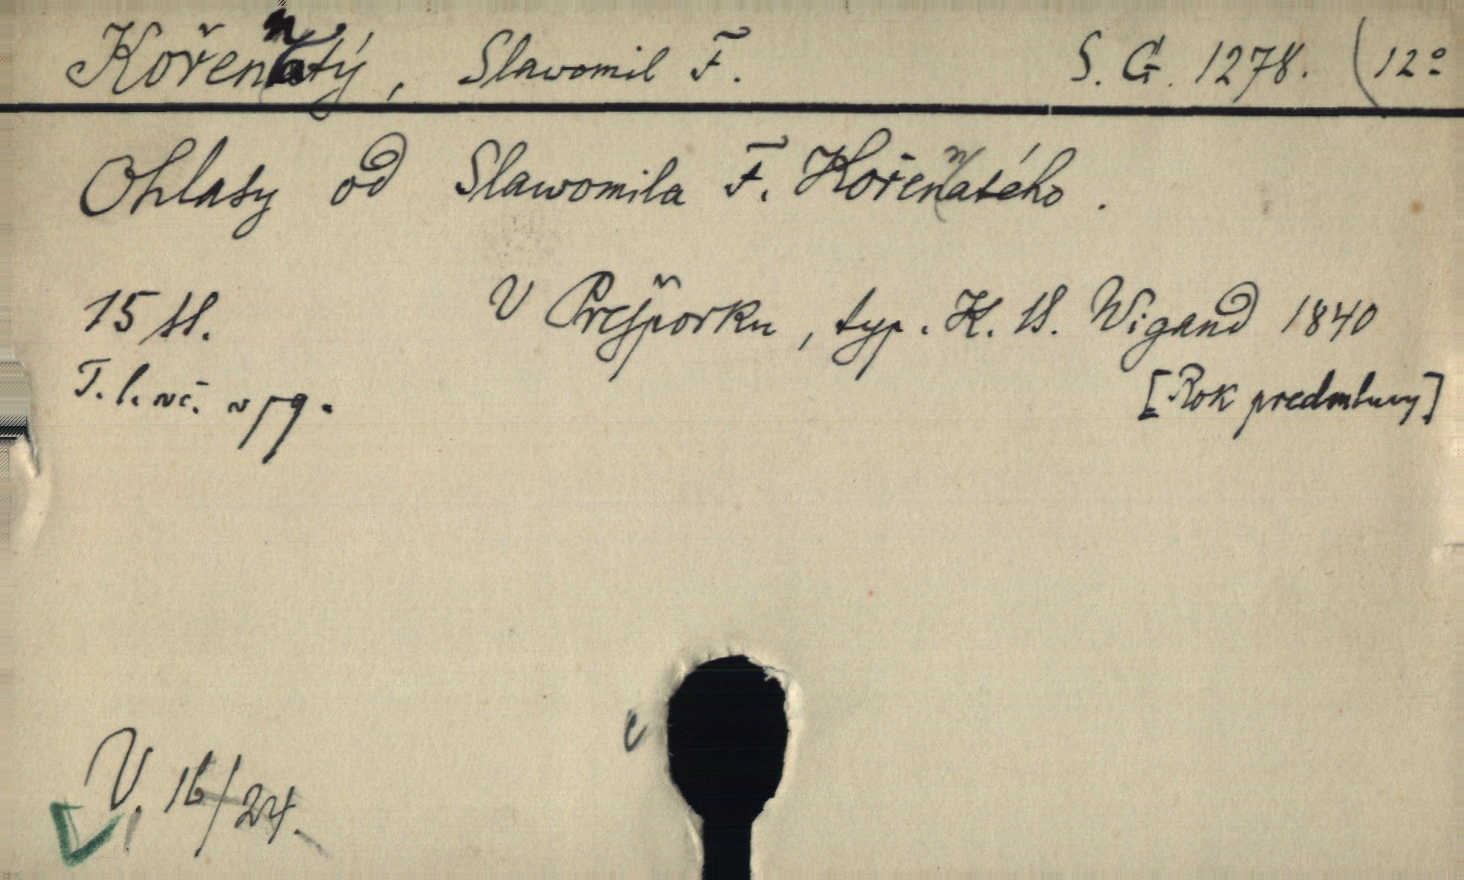 Kořennatý, Slawomil F. S. G. 1278. (12°
Ohlasy od Slawomila F. Kořennatého.
15 st. V Prešporku, typ. K. S. Wigand 1840
T. l. vč. v pg. [Rok predmluvy]
c
V. 16/24.